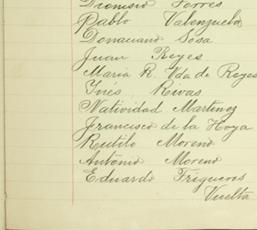 Dionisio Torres
Pablo Valenzuela
Donaciano Sosa
Juan Reyes
Maria R. Vda de Reyes
Inés Rivas
Natividad Martinez
Francisco de la Hoya
Rutilo Moreno
Antonio Moreno
Eduardo Trigueros
Vuelta